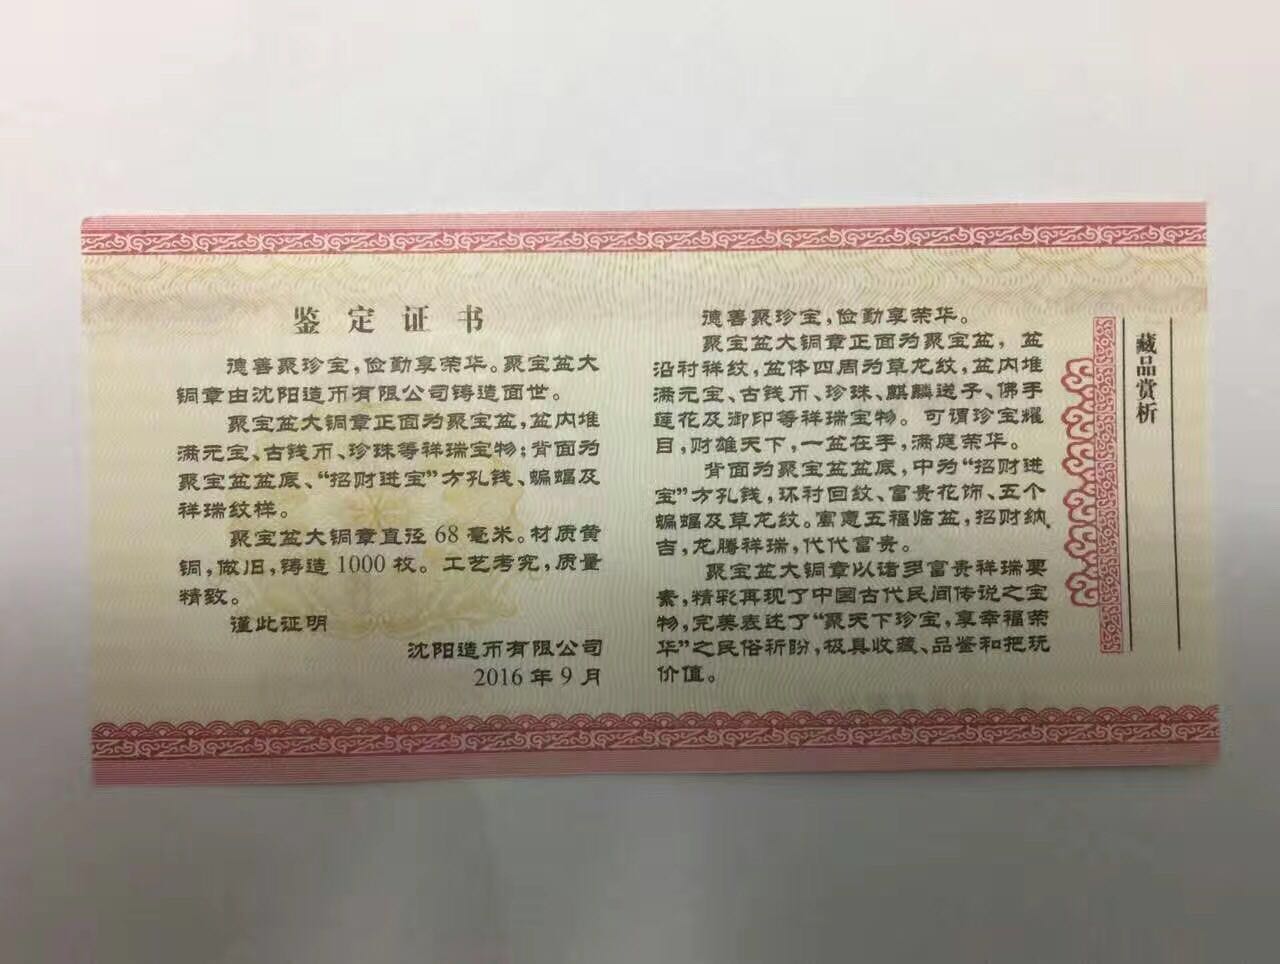 鉴定证书
德善聚珍宝，俭勤享荣华。聚宝盆大
铜章由沈阳造币有限公司铸造面世。
聚宝盆大铜章正面为聚宝盆，盆内堆
满元宝、古钱币、珍珠等祥瑞宝物；背面为
聚宝盆盆底、“招财进宝”方孔钱、蝙蝠及
祥瑞纹样。
聚宝盆大铜章直径 68 毫米。材质黄
铜，做旧，铸造 1000 枚。工艺考究，质量
精致。
谨此证明
沈阳造币有限公司
2016 年 9 月
德善聚珍宝，俭勤享荣华。
聚宝盆大铜章正面为聚宝盆，盆
沿衬祥纹，盆体四周为草龙纹，盆内堆
满元宝、古钱币、珍珠、麒麟送子、佛手
莲花及御印等祥瑞宝物。可谓珍宝耀
目，财雄天下，一盆在手，满庭荣华。
背面为聚宝盆盆底，中为“招财进
宝”方孔钱，环衬回纹、富贵花饰、五个
蝙蝠及草龙纹。寓意五福临盆，招财纳
吉，龙腾祥瑞，代代富贵。
聚宝盆大铜章以诸多富贵祥瑞要
素，精彩再现了中国古代民间传说之宝
物，完美表述了“聚天下珍宝，享幸福荣
华”之民俗祈盼，极具收藏、品鉴和把玩
价值。
藏品赏析